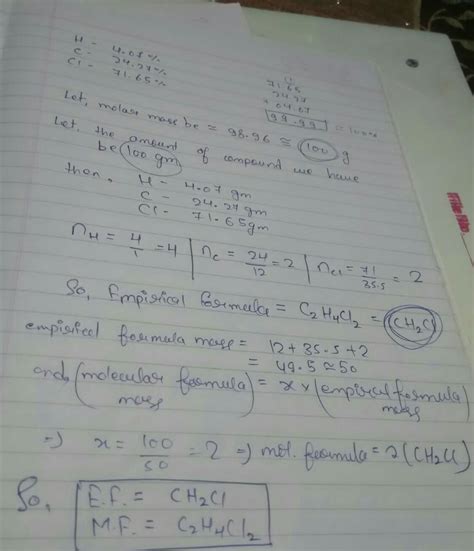 H - 4.07%
C - 24.27%
Cl - 71.65%
71.65
24.27
+ 04.07
99.99 = 100%
Let, molar mass be = 98.96 ≅ 100 g
Let, the amount of compound we have
be 100 gm
then, H - 4.07 gm
C - 24.27 gm
Cl - 71.65 gm
nH = 4/1 = 4 | nC = 24/12 = 2 | nCl = 71/35.5 = 2
So, Empirical formula = C2H4Cl2 = CH2Cl
empirical formula mass = 12 + 35.5 + 2
= 49.5 ≅ 50
and, (molecular formula mass) = x × (empirical formula mass)
=) x = 100/50 = 2 =) mol. formula = 2(CH2Cl)
So, E.F. = CH2Cl
M.F. = C2H4Cl2